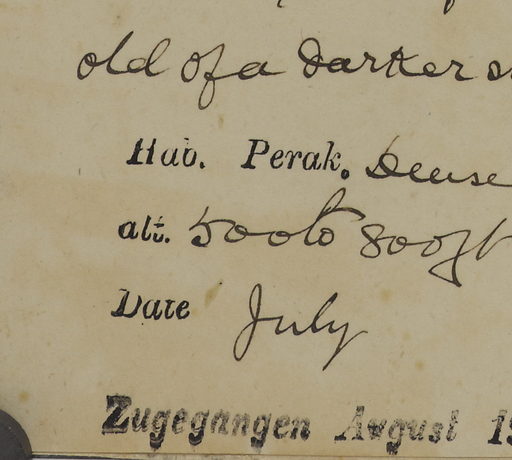 old of a darker
Hab. Perak. Dense
alt. 500 to 800 ft
Date July
Zugegangen August 19